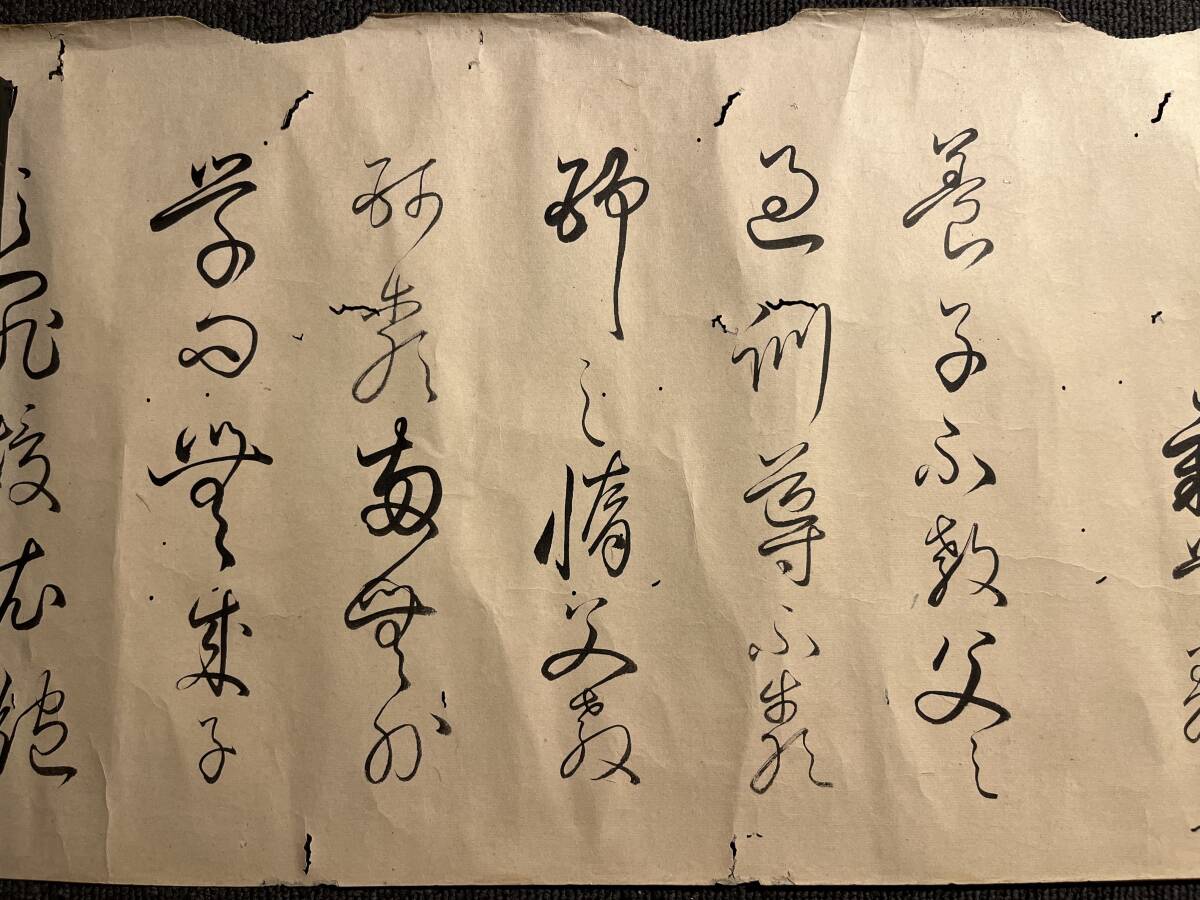 養子不教父之
過訓導不嚴
師之惰父教
師嚴兩無外
学問無成子
之罪煖衣飽